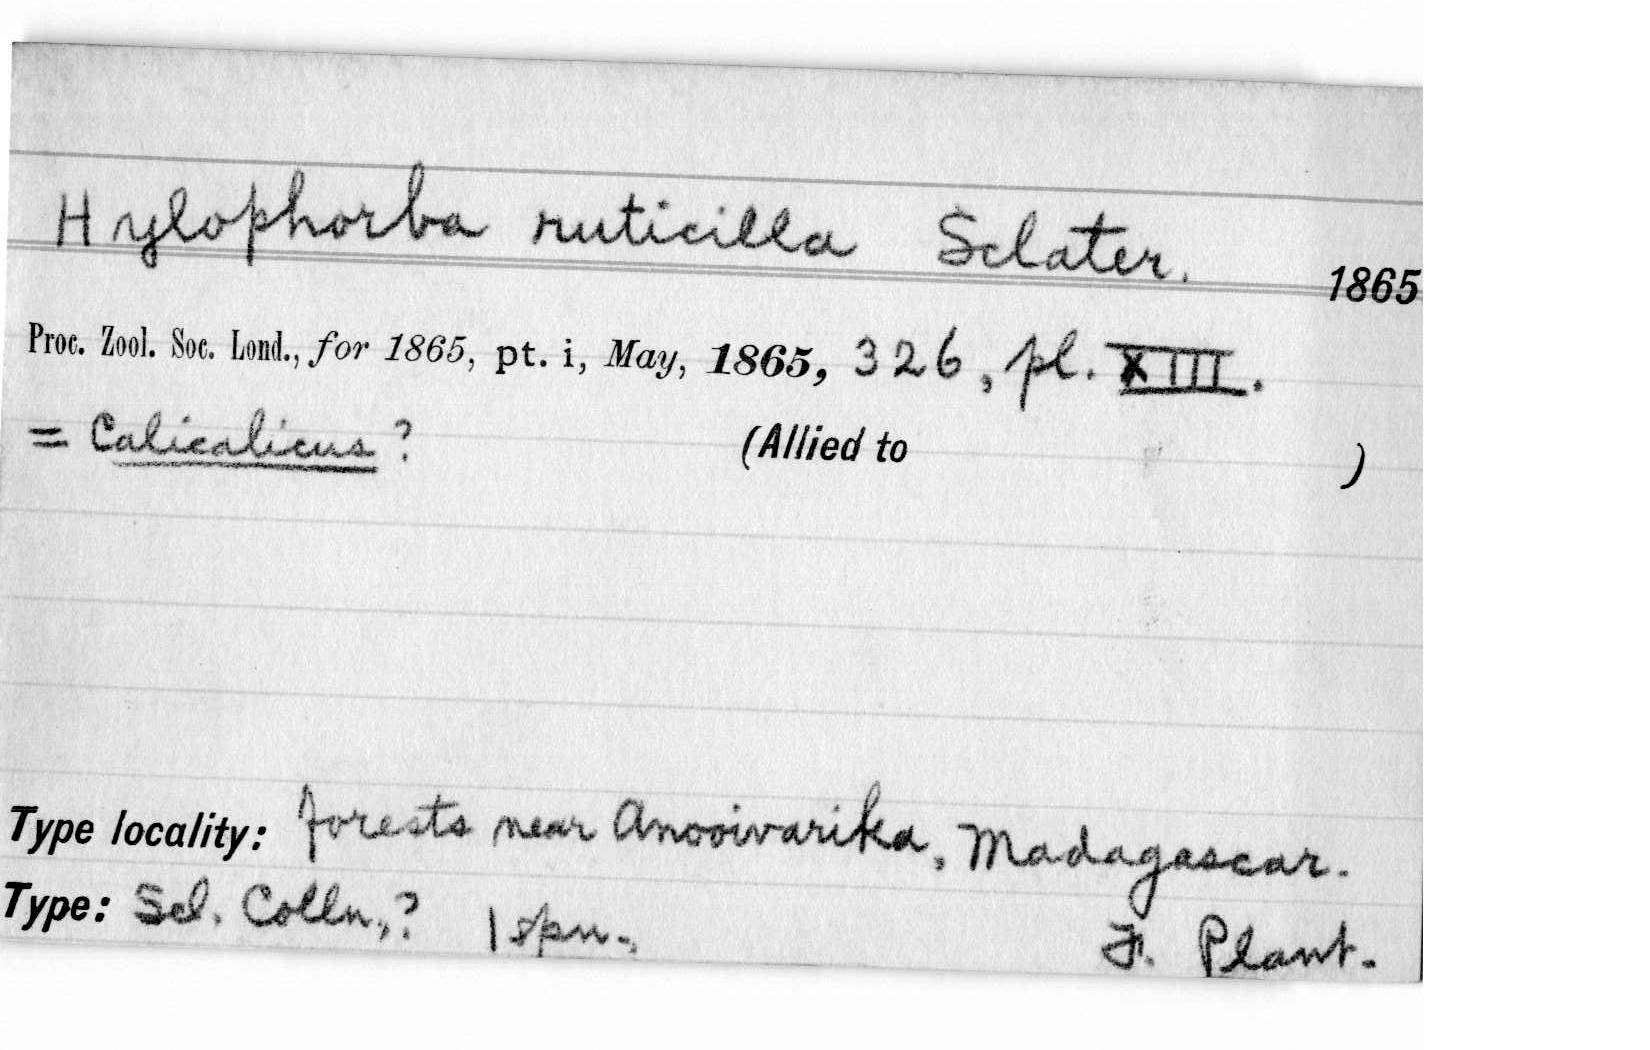 Hylophorba ruticilla Sclater. 1865
Proc. Zool. Soc. Lond., for 1865, pt. i, May, 1865, 326, pl. XIII.
= Calicalicus? (Allied to )
Type locality: forests near Anooivarika, Madagascar.
Type: Scl. Colln.,? 1 spn., F. Plant.